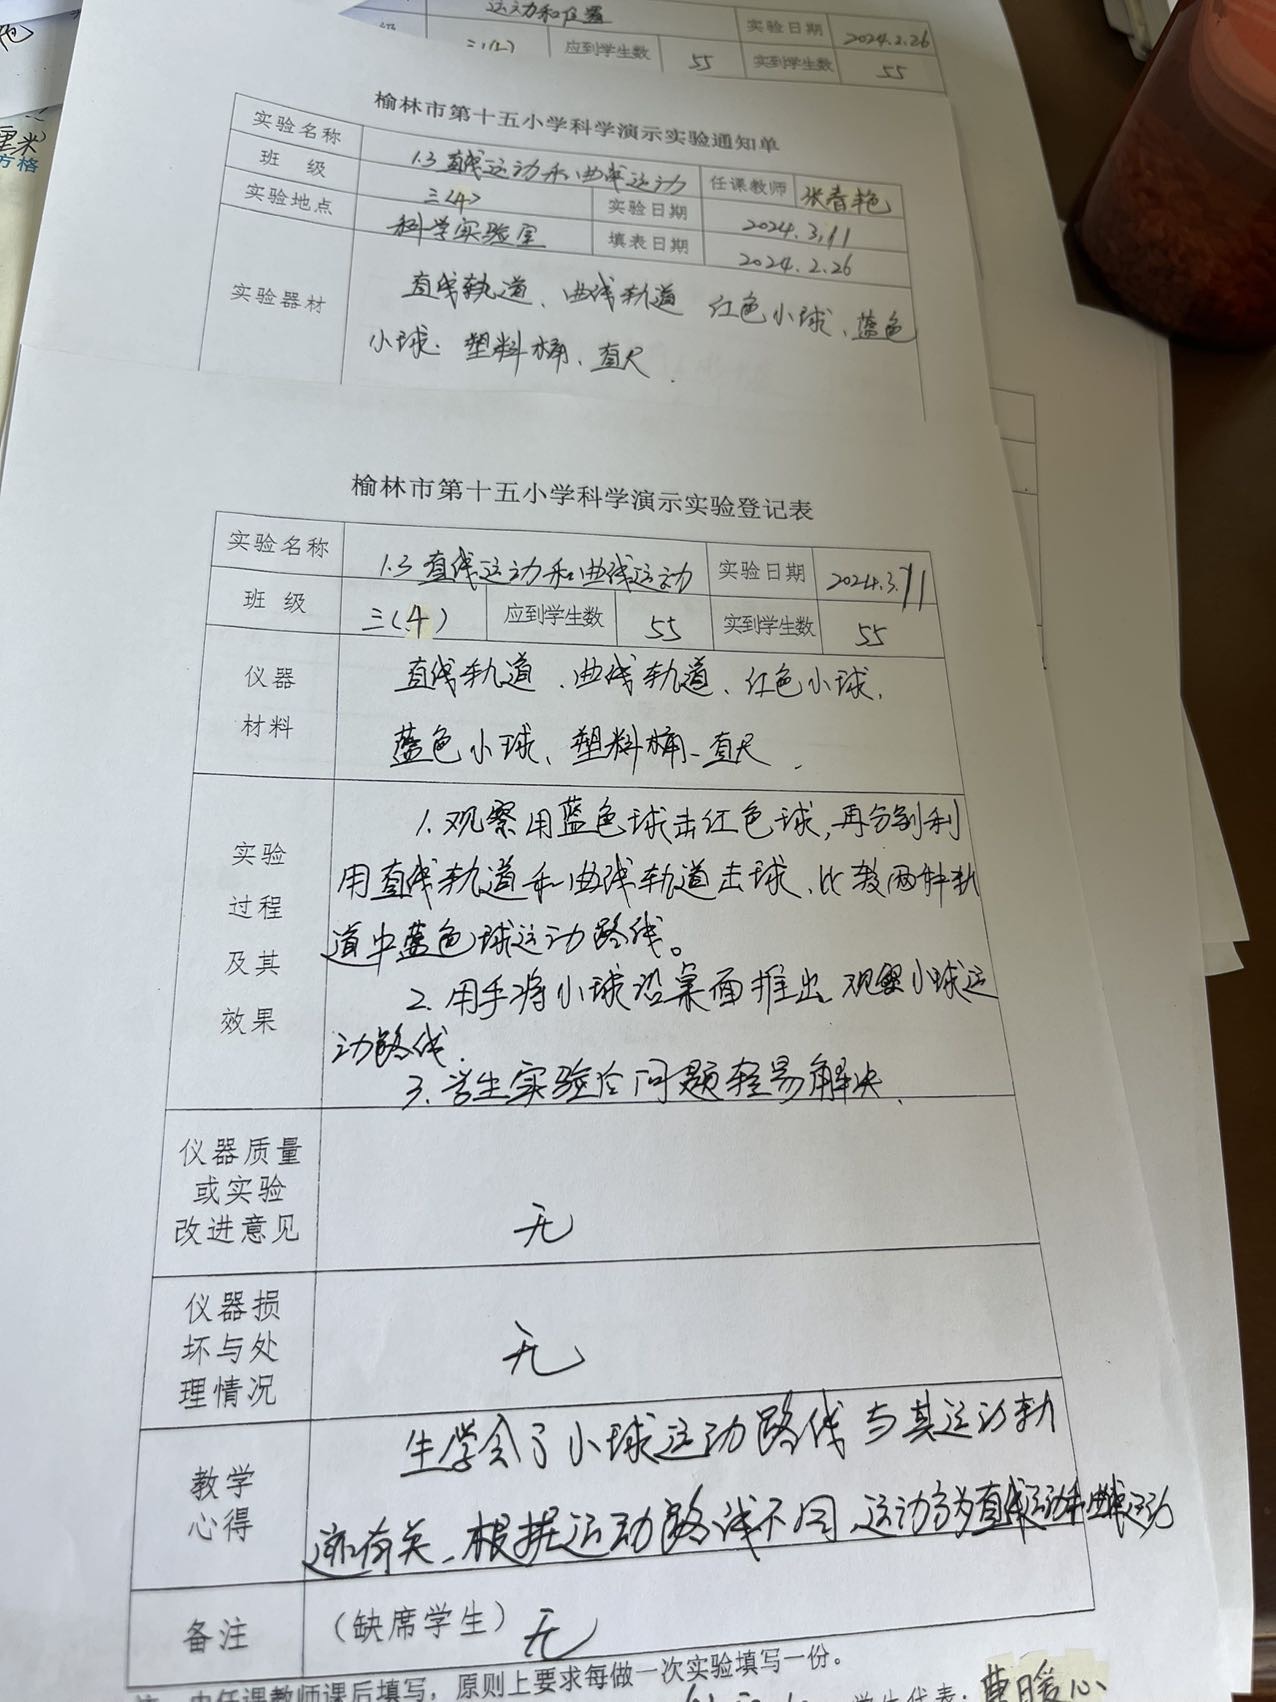 运动和位置
实验日期
2024.2.26
三(2)
应到学生数
55
实到学生数
55
厘米
方格
榆林市第十五小学科学演示实验通知单
实验名称
1.3 直线运动和曲线运动
任课教师
张春艳
班 级
三(4)
实验日期
2024.3.11
实验地点
科学实验室
填表日期
2024.2.26
实验器材
直线轨道、曲线轨道 红色小球、蓝色
小球、塑料桶、直尺
榆林市第十五小学科学演示实验登记表
实验名称
1.3 直线运动和曲线运动
实验日期
2024.3.11
班 级
三(4)
应到学生数
55
实到学生数
55
仪器
材料
直线轨道、曲线轨道、红色小球、
蓝色小球、塑料桶、直尺
实验
过程
及其
效果
1.观察用蓝色球击红色球,再分别利
用直线轨道和曲线轨道击球、比较两种轨
道中蓝色球运动路线。
2.用手将小球沿桌面推出,观察小球运
动路线.
3.学生实验后问题轻易解决.
仪器质量
或实验
改进意见
无
仪器损
坏与处
理情况
无
教学
心得
生学会了小球运动路线与其运动轨
迹有关、根据运动路线不同、运动分为直线运动和曲线运动
备注
(缺席学生)无
由任课教师课后填写,原则上要求每做一次实验填写一份。
学生代表: